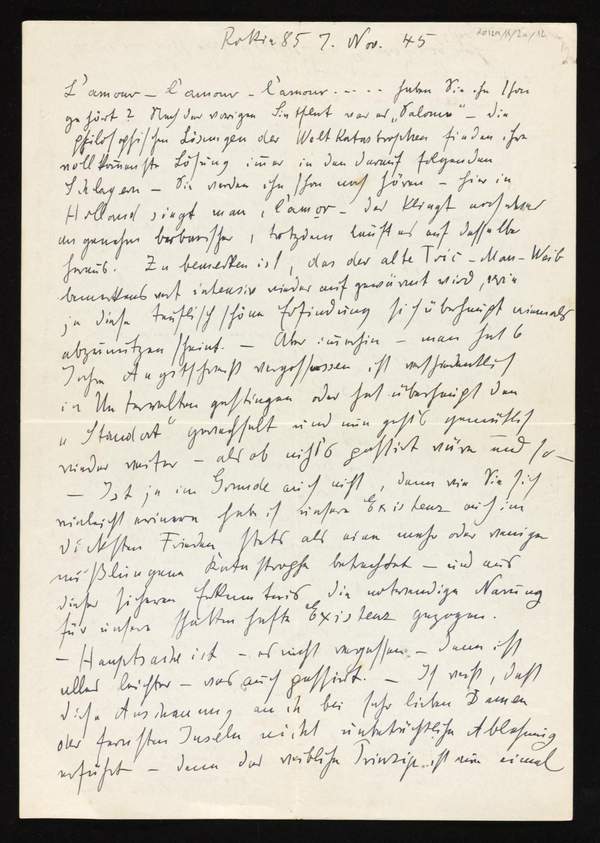 Rokin 85 7. Nov. 45
L'amour – l'amour – l'amour ..... haben Sie ihn schon
gehört? Nach der vorigen Sintflut war es „Salome" – die
philosophischen Lösungen der Weltkatastrophen finden ihre
vollkommenste Lösung immer in den darauf folgenden
Schlagern – Sie werden ihn schon noch hören – hier in
Holland singt man, l'amor – das klingt noch
angenehm barbarischer, trotzdem läuft es auf dasselbe
heraus. Zu bemerken ist, das der alte Tric – Man – Weib
bemerkenswert intensiv wieder aufgewärmt wird, wie
ja diese teuflisch schöne Erfindung sich überhaupt niemals
abzunützen scheint. – Aber immerhin – man hat 6
Jahre Angstschweiß vergossen, ist verschiedentlich
in Unterwelten gestiegen oder hat überhaupt den
„Standort" gewechselt und nun geht's gemütlich
wieder weiter – als ob nichts passirt wäre und so –
– Ist ja im Grunde auch nicht, denn wie Sie sich
vielleicht erinnern habe ich unsere Existenz auch im
dicksten Frieden stets als eine mehr oder weniger
mißlungene Katastrophe betrachtet – und aus
dieser sicheren Erkenntnis die notwendige Narung
für unsere schattenhafte Existenz gezogen.
– Hauptsache ist – es nicht vergessen – dann ist
alles leichter – was auch passirt. – Ich weiß, daß
diese Anschauung auch bei sehr lieben Damen
der fernsten Inseln nicht unbeträchtliche Ablehnung
erfährt – denn das weibliche Prinzip ist nun einmal